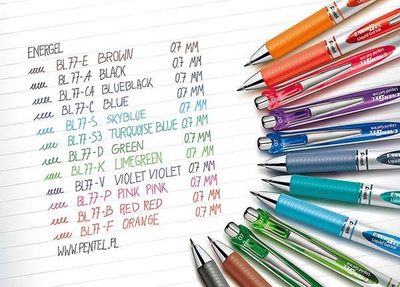 ENERGEL
BL77-E BROWN 0.7 MM
BL77-A BLACK 0.7 MM
BL77-CA BLUEBLACK 0.7 MM
BL77-C BLUE 0.7 MM
BL77-S SKYBLUE 0.7 MM
BL77-S3 TURQUOISE BLUE 0.7 MM
BL77-D GREEN 0.7 MM
BL77-K LIMEGREEN 0.7 MM
BL77-V VIOLET VIOLET 0.7 MM
BL77-P PINK PINK 0.7 MM
BL77-B RED RED 0.7 MM
BL77-F ORANGE 0.7 MM
WWW.PENTEL.PL
ENERGEL
Liquid Gel Ink